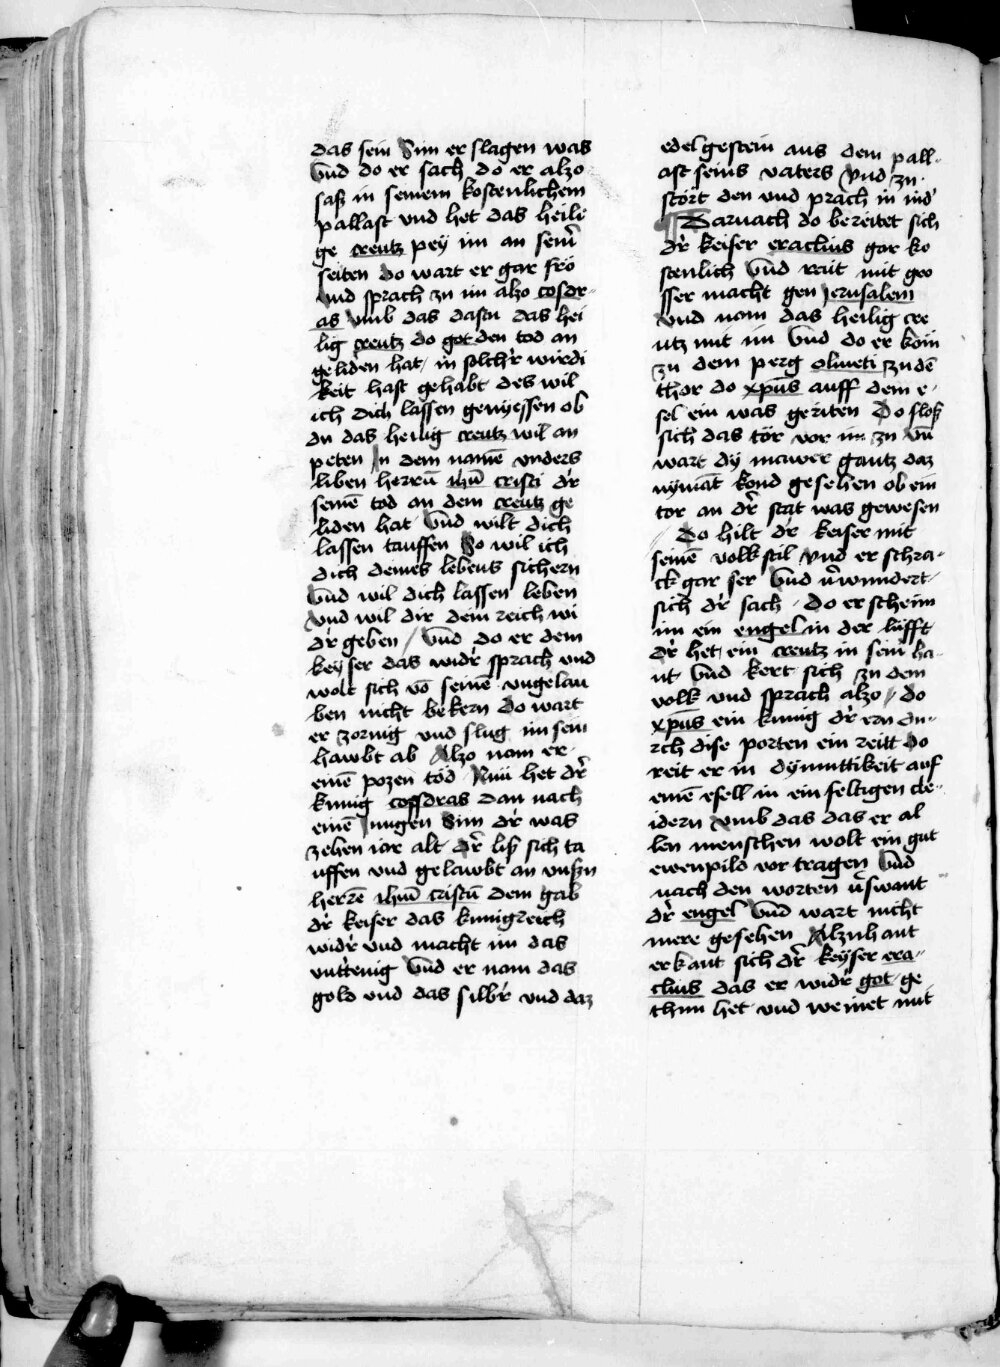 das sein Sun er slagen was
Vnd do er sach do er alzo
saß in seinem kostenlichem
pallast vnd het das heili
ge creutz pey im an seiñ
seiten do wart er gar fro
vnd sprach zu im alzo cosdr-
as vmb das dastu das hei
lig creutz do got den tod an
geliden hat / in solchr wirdi
keit hast gehabt des wil
ich dich lassen genyessen ob
du das heilig creutz wil an
peten In dem namē vnders
liben herrn ihū cristi dr
seinē tod an dem creutz ge
liden hat Vnd wilt dich
lassen tauffen So wil ich
dich deines lebens sichern
Vnd wil dich lassen leben
Vnd wil dir dein reich wi
dr geben / Vnd do er dem
keyser das widr sprach vnd
wolt sich vō seinē vngelau
ben nicht bekern do wart
er zornig vnd slug im sein
hawbt ab Alzo nam er
einē pozen tod Nun het dr
kunig cossdras dan nach
einē iungen Sun dr was
zehen iar alt dr liß sich ta
uffen vnd gelawbt an vnßn
herrē ihū cristū dem gab
dr keiser das kunigreich
widr vnd macht im das
vntrenig Vnd er nam das
gold vnd das silbr vnd daz
edel gestein aus dem pall-
ast seins vaters Vnd zu
stört den vnd prach in nidr
Darnach do bereitet sich
dr keiser eraclius gar ko
stenlich Vnd reit mit gro
sser macht gen Jerusalem
Vnd nam das heilig cre
utz mit im Vnd do er kom
zu dem perg oliueti zu dē
thor do xpūs auff dem e-
sel ein was geriten Do sloß
sich das tör vor im zu vñ
wart dy mawer gantz daz
nymāt kond gesehen ob ein
tor an dr stat was gewesen
Do hilt dr keiser mit
seinē volk stil vnd er schra-
ck gar ser Vnd v̄wundert
sich dr sach . do erschein
im ein engel in der lufft
dr het ein creutz in seinr ha-
nt Vnd kert sich zu dem
volk vnd sprach alzo / do
xpūs ein kunig dr ern du-
rch dise porten ein reitt do
reit er in dymuttikeit auf
einē esell in ein feltigen cle-
idern vmb das das er al
len menschen wolt ein gut
ewenpild vor tragen Vnd
nach den worten v̄swant
dr engel Vnd wart nicht
mere gesehen Alzuhant
erkant sich dr keyser era-
clius das er widr got ge
thun het vnd weinet mit